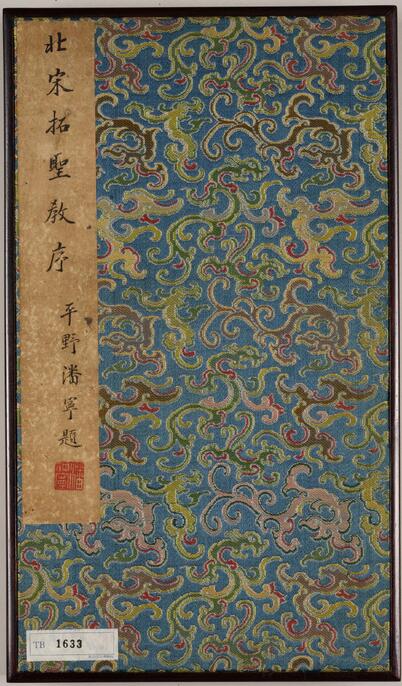 北宋拓聖教序
平野潘寧題
TB 1633